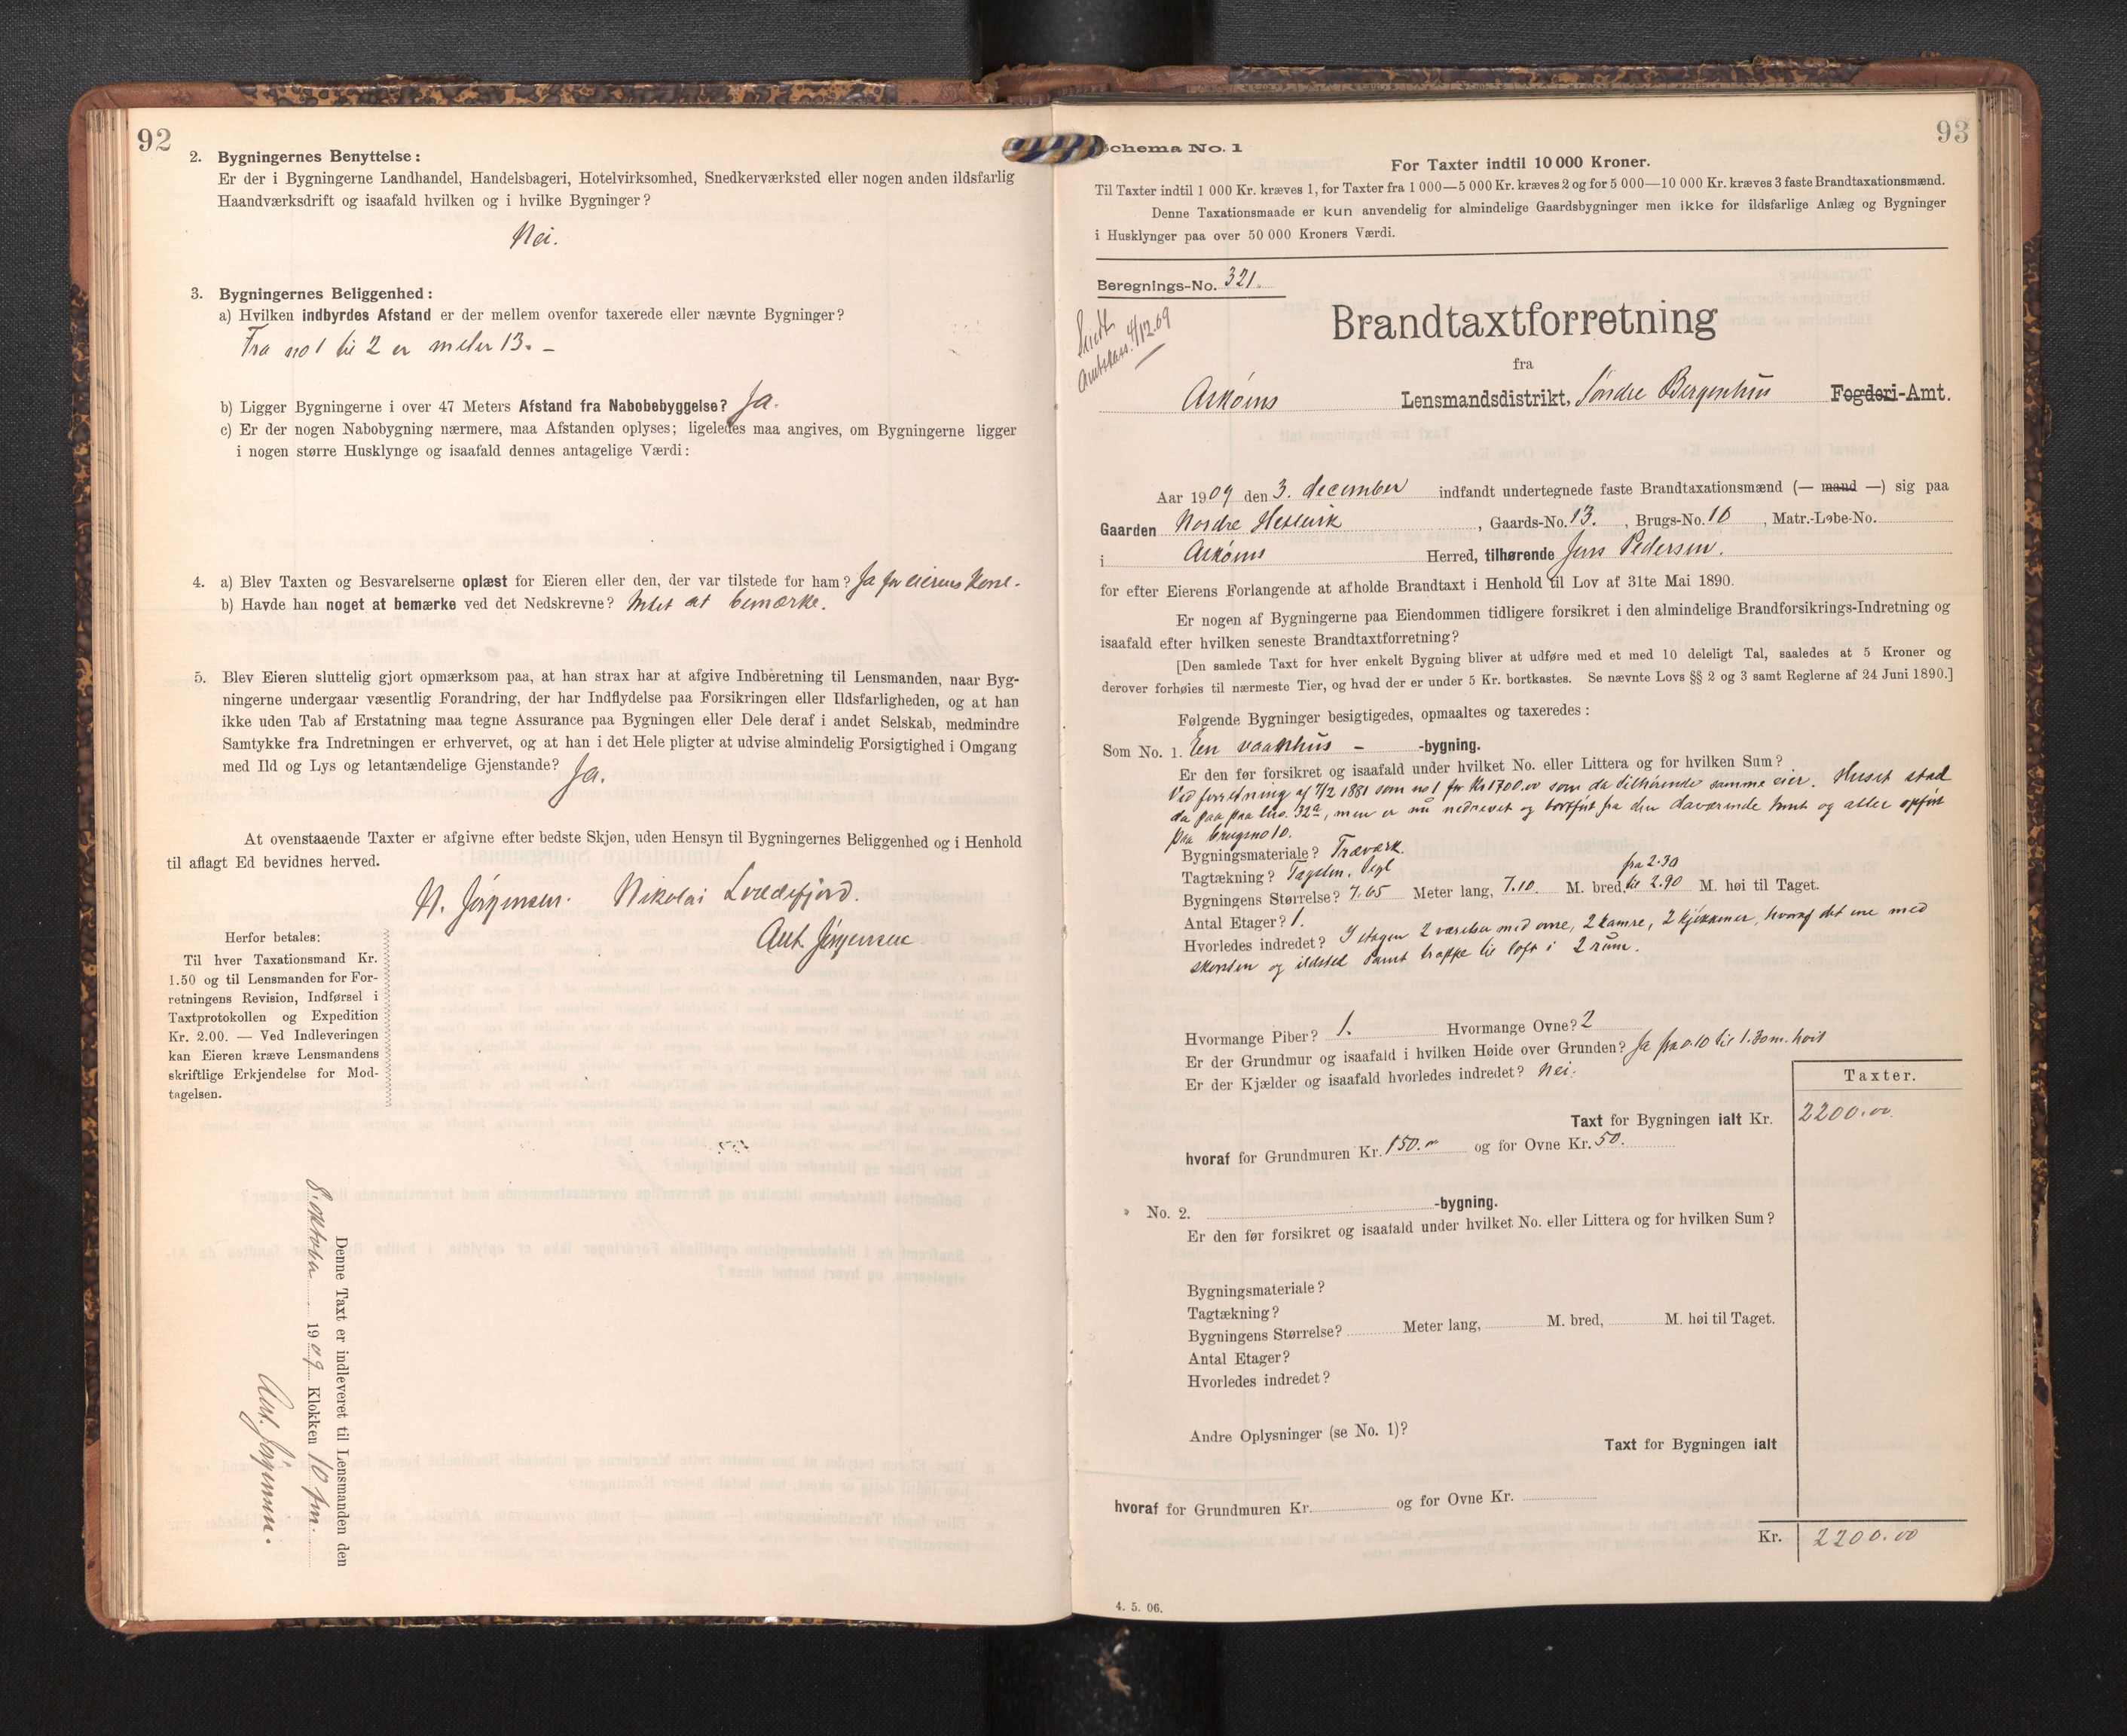 92
2. Bygningernes Benyttelse:
Er der i Bygningerne Landhandel, Handelsbageri, Hotelvirksomhed, Snedkerværksted eller nogen anden ildsfarlig
Haandværksdrift og isaafald hvilken og i hvilke Bygninger?
Nei.
3. Bygningernes Beliggenhed:
a) Hvilken indbyrdes Afstand er der mellem ovenfor taxerede eller nævnte Bygninger?
Fra no 1 til 2 er meter 13. –
b) Ligger Bygningerne i over 47 Meters Afstand fra Nabobebyggelse? Ja.
c) Er der nogen Nabobygning nærmere, maa Afstanden oplyses; ligeledes maa angives, om Bygningerne ligger
i nogen større Husklynge og isaafald dennes antagelige Værdi:
4. a) Blev Taxten og Besvarelserne oplæst for Eieren eller den, der var tilstede for ham? Ja for eierens kone.
b) Havde han noget at bemærke ved det Nedskrevne? Intet at bemærke.
5. Blev Eieren sluttelig gjort opmærksom paa, at han strax har at afgive Indberetning til Lensmanden, naar Byg-
ningerne undergaar væsentlig Forandring, der har Indflydelse paa Forsikringen eller Ildsfarligheden, og at han
ikke uden Tab af Erstatning maa tegne Assurance paa Bygningen eller Dele deraf i andet Selskab, medmindre
Samtykke fra Indretningen er erhvervet, og at han i det Hele pligter at udvise almindelig Forsigtighed i Omgang
med Ild og Lys og letantændelige Gjenstande? Ja.
At ovenstaaende Taxter er afgivne efter bedste Skjøn, uden Hensyn til Bygningernes Beliggenhed og i Henhold
til aflagt Ed bevidnes herved.
N. Jørgensen. Nikolai
Ant. Jørgensen
Herfor betales:
Til hver Taxationsmand Kr.
1.50 og til Lensmanden for For-
retningens Revision, Indførsel i
Taxtprotokollen og Expedition
Kr. 2.00. — Ved Indleveringen
kan Eieren kræve Lensmandens
skriftlige Erkjendelse for Mod-
tagelsen.
Denne Taxt er indleveret til Lensmanden den
8. oktober 1909 Klokken 10 fm.
Ant. Jørgensen.
93
Schema No. 1
For Taxter indtil 10 000 Kroner.
Til Taxter indtil 1 000 Kr. kræves 1, for Taxter fra 1 000—5 000 Kr. kræves 2 og for 5 000—10 000 Kr. kræves 3 faste Brandtaxationsmænd.
Denne Taxationsmaade er kun anvendelig for almindelige Gaardsbygninger men ikke for ildsfarlige Anlæg og Bygninger
i Husklynger paa over 50 000 Kroners Værdi.
Beregnings-No. 321.
4/12.09
Brandtaxtforretning
fra
Askøens Lensmandsdistrikt, Søndre Bergenhus Fogderi-Amt.
Aar 1909 den 3. december indfandt undertegnede faste Brandtaxationsmænd (— mand —) sig paa
Gaarden Nordre Hetlevik, Gaards-No. 13., Brugs-No. 10, Matr.-Løbe-No.
i Askøens Herred, tilhørende Jens Pedersen.
for efter Eierens Forlangende at afholde Brandtaxt i Henhold til Lov af 31te Mai 1890.
Er nogen af Bygningerne paa Eiendommen tidligere forsikret i den almindelige Brandforsikrings-Indretning og
isaafald efter hvilken seneste Brandtaxtforretning?
[Den samlede Taxt for hver enkelt Bygning bliver at udføre med et med 10 deleligt Tal, saaledes at 5 Kroner og
derover forhøies til nærmeste Tier, og hvad der er under 5 Kr. bortkastes. Se nævnte Lovs §§ 2 og 3 samt Reglerne af 24 Juni 1890.]
Følgende Bygninger besigtigedes, opmaaltes og taxeredes:
Som No. 1. En vaanhus – -bygning.
Er den før forsikret og isaafald under hvilket No. eller Littera og for hvilken Sum?
Ved forretning af 7/2 1881 som no 1 for Kr 1700.00 som da tilhørende samme eier. Huset stod
da paa paa no. 32a, men er nu nedrevet og bortført fra den daværende tomt og atter opført
paa brugsno 10.
Bygningsmateriale? Træværk.
Tagtækning? Tagsten.
Bygningens Størrelse? 7.65 Meter lang, 7.10 M. bred, fra 2.30 til 2.90 M. høi til Taget.
Antal Etager? 1.
Hvorledes indredet? I etagen 2 værelser med ovne, 2 kamre, 2 kjøkkener, hvoraf det ene med
skorsten og ildsted samt trappe til loft i 2 rum.
Hvormange Piber? 1. Hvormange Ovne? 2
Er der Grundmur og isaafald i hvilken Høide over Grunden? Ja fra 0.10 til 1.30 m. høit
Er der Kjælder og isaafald hvorledes indredet? Nei.
Taxter.
Taxt for Bygningen ialt Kr. 2200.00
hvoraf for Grundmuren Kr. 150.00 og for Ovne Kr. 50.
No. 2. -bygning.
Er den før forsikret og isaafald under hvilket No. eller Littera og for hvilken Sum?
Bygningsmateriale?
Tagtækning?
Bygningens Størrelse? Meter lang, M. bred, M. høi til Taget.
Antal Etager?
Hvorledes indredet?
Andre Oplysninger (se No. 1)?
Taxt for Bygningen ialt
hvoraf for Grundmuren Kr. og for Ovne Kr.
Kr. 2200.00
4. 5. 06.